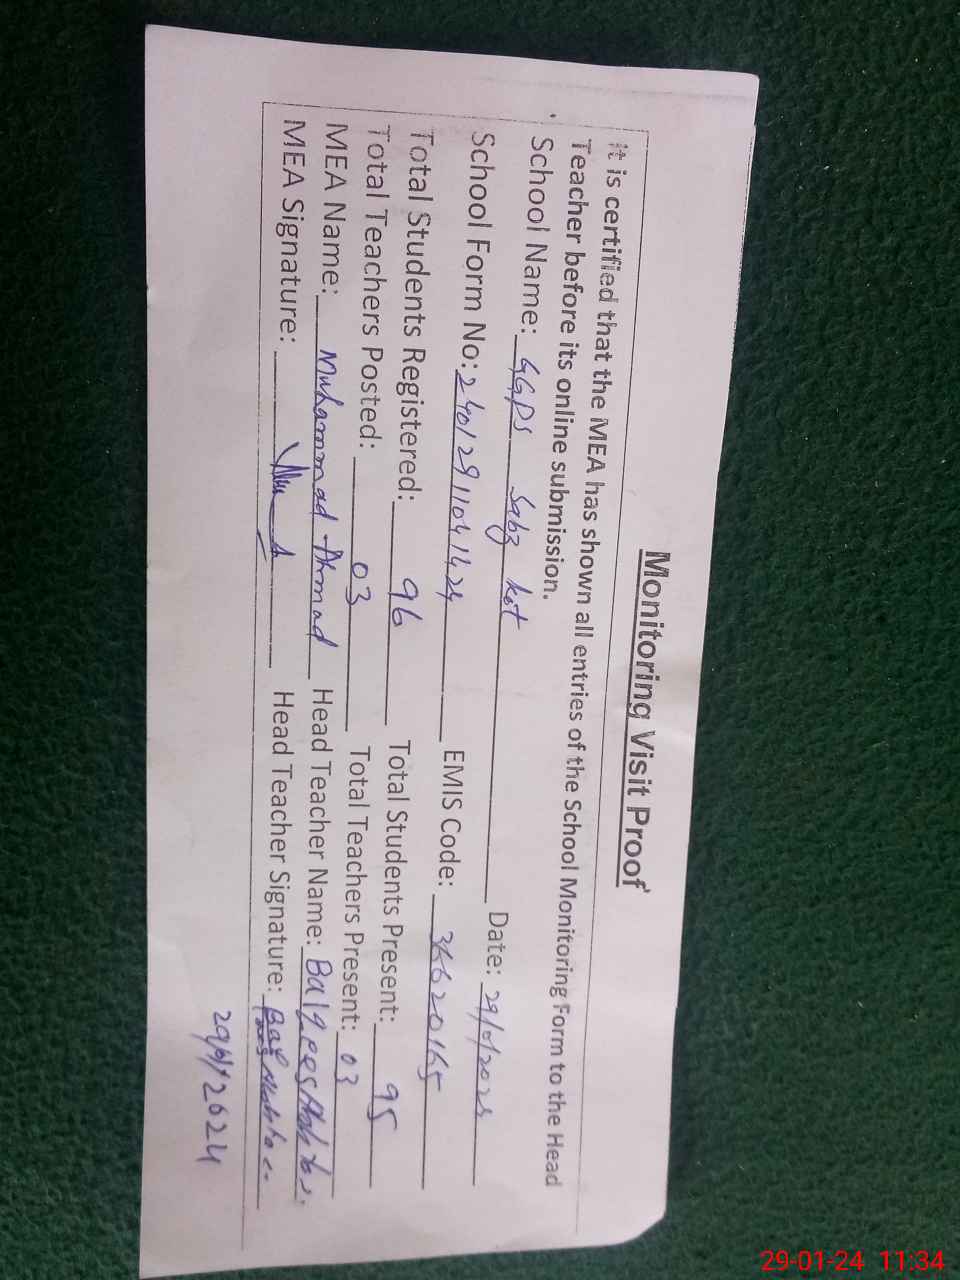 Monitoring Visit Proof
It is certified that the MEA has shown all entries of the School Monitoring Form to the Head
Teacher before its online submission.
School Name: GGPS Sabz kot Date: 29/01/2024
School Form No: EMIS Code: 36620165
Total Students Registered: 96 Total Students Present: 95
Total Teachers Posted: 03 Total Teachers Present: 03
MEA Name: Muhammad Ahmad Head Teacher Name:
MEA Signature: Head Teacher Signature:
29/01/2024
29-01-24 11:34